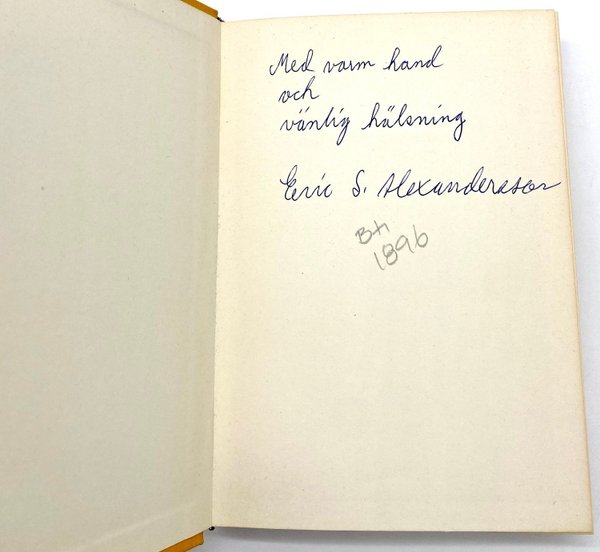 Med varm hand
och
vänlig hälsning
Eric S. Alexandersson
BH
1896